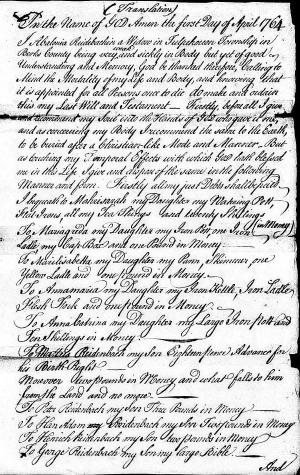 (Translation)
In the Name of God Amen the first Day of April 1764
I Abalonia Reidebachin a Widow in Tulpehocon Township in
Berks County being weak and sickly in Body but yet of good
Understanding and Memory, God be thanked therefore, Calling to
Mind the Mortality of my Life and Body, and knowing that
it is appointed for all Persons once to die do make and ordain
this my Last Will and Testament — Firstly, before all I give
and recommend my Soul into the Hands of God who gave it me,
and as concerning my Body I recommend the same to the Earth,
to be buried after a Christian-like Mode and Manner — But
as touching my Temporal Effects with which God hath blessed
me in this Life I give and dispose of the same in the following
Manner and form. Firstly all my just Debts shall be paid
I bequeath to my Daughter my Washing Pott,
all my Tea Things and twenty Shillings
(in Money)
To my Daughter my Iron Pot, one Iron
Ladle, my Cap Box and one Pound in Money
To Marilisabetha my Daughter my Skimmer one
Yellow Ladle and one pound in Money
To Annamaria my Daughter my Iron Kittle, Iron Ladle
Flesh Fork and one pound in Money
To Anna Catrina my Daughter my Large Iron pott and
Ten Shillings in Money
To Reidenbach my Son Eighteen pence Advance for
his Birth Right
Moreover two pounds in Money and what falls to him
from the Land and no more
To Peter Reidebach my Son Three Pounds in Money
To Adam Reidenbach my Son Two pounds in Money
To Henrich Reidenbach my Son two pounds in Money
To George Reidenbach my Son my large Bible
And